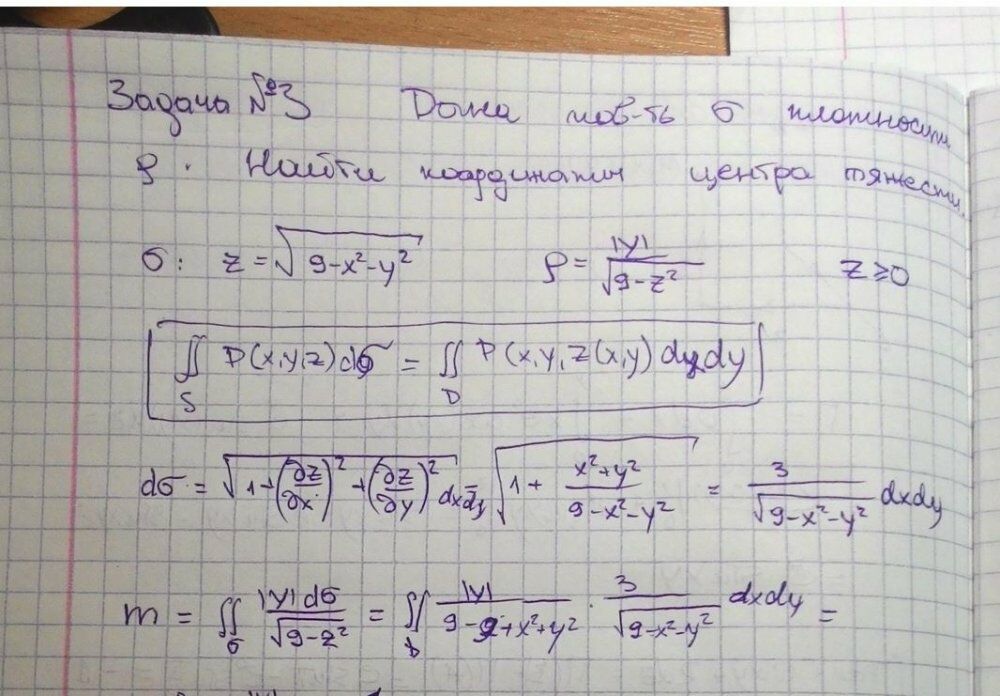 Задача №3 Дана пов-ть σ плотности
ρ. Найти координаты центра тяжести.
σ: z = √(9-x²-y²) ρ = |y|/√(9-z²) z ≥ 0
∬_S P(x,y,z)dσ = ∬_D P(x,y,z(x,y)) dxdy
dσ = √(1+(∂z/∂x)²+(∂z/∂y)²) dxdy = √(1 + (x²+y²)/(9-x²-y²)) = 3/√(9-x²-y²) dxdy
m = ∬_σ |y|dσ/√(9-z²) = ∬_D |y|/(9-9+x²+y²) · 3/√(9-x²-y²) dxdy =